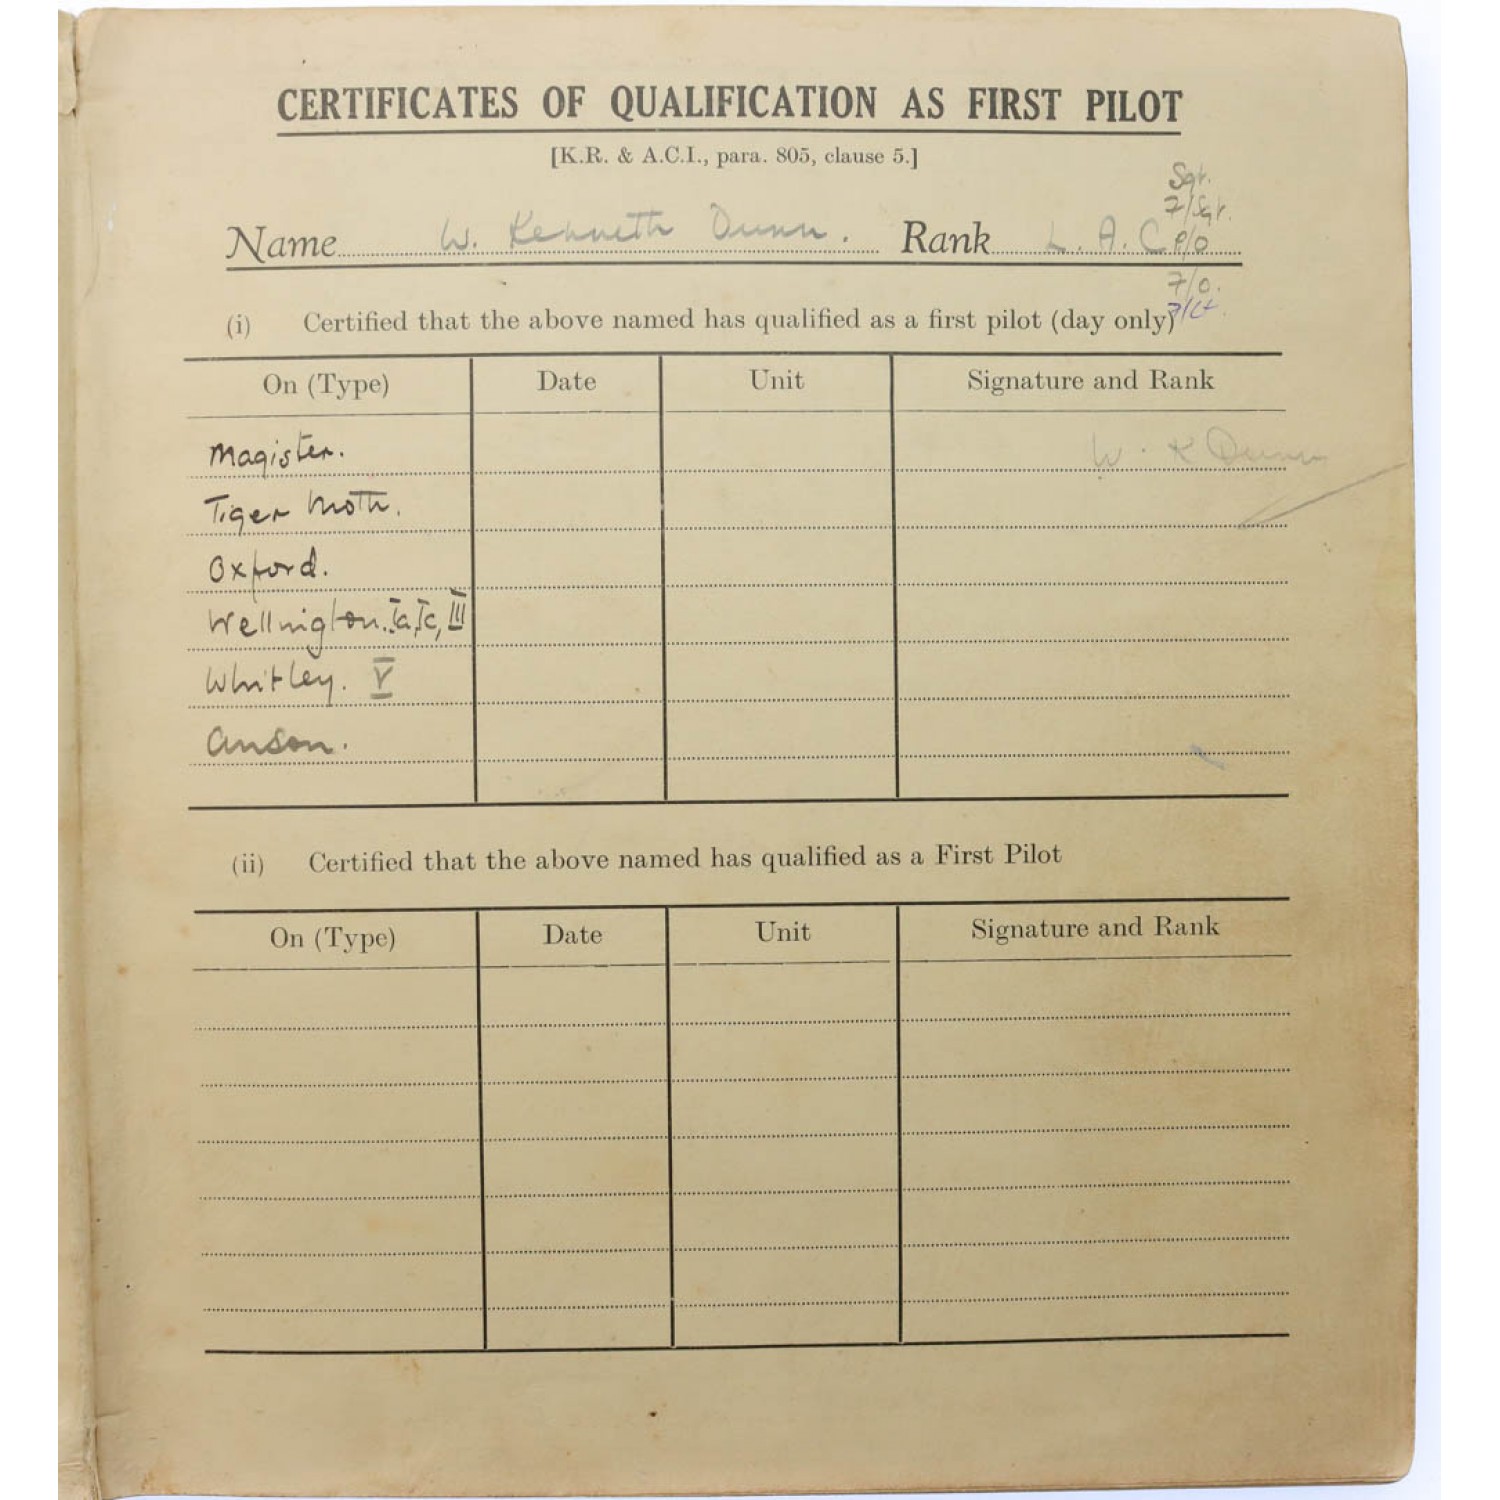 CERTIFICATES OF QUALIFICATION AS FIRST PILOT
[K.R. & A.C.I., para. 805, clause 5.]
Sgt.
F/Sgt.
Name W. Kenneth Dunn. Rank L.A.C P/O
F/O.
F/Lt.
(i) Certified that the above named has qualified as a first pilot (day only)
On (Type) Date Unit Signature and Rank
Magister. W. K Dunn
Tiger Moth.
Oxford.
Wellington. Ia, Ic, III
Whitley. V
Anson.
(ii) Certified that the above named has qualified as a First Pilot
On (Type) Date Unit Signature and Rank